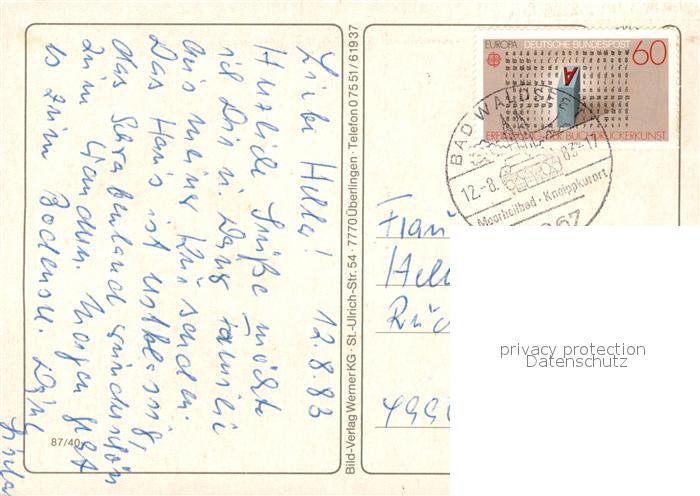 Liebe Hella! 12.8.83
Herzliche Grüße möchte
ich Dir u. Deiner Familie
aus meiner Kur senden.
Das Haus ist erstklassig,
das Schwabenland wunderschön
zum Wandern. Morgen geht
es zum Bodensee. Deine
87/40
Bild-Verlag Werner KG · St.-Ulrich-Str. 54 · 7770 Überlingen · Telefon 07551/61937
EUROPA DEUTSCHE BUNDESPOST 60
ERFINDUNG DER BUCHDRUCKERKUNST
BAD WALDSEE
12.-8. 83.-17
Moorheilbad · Kneippkurort
Frau
Hell
Rüc
499
privacy protection
Datenschutz